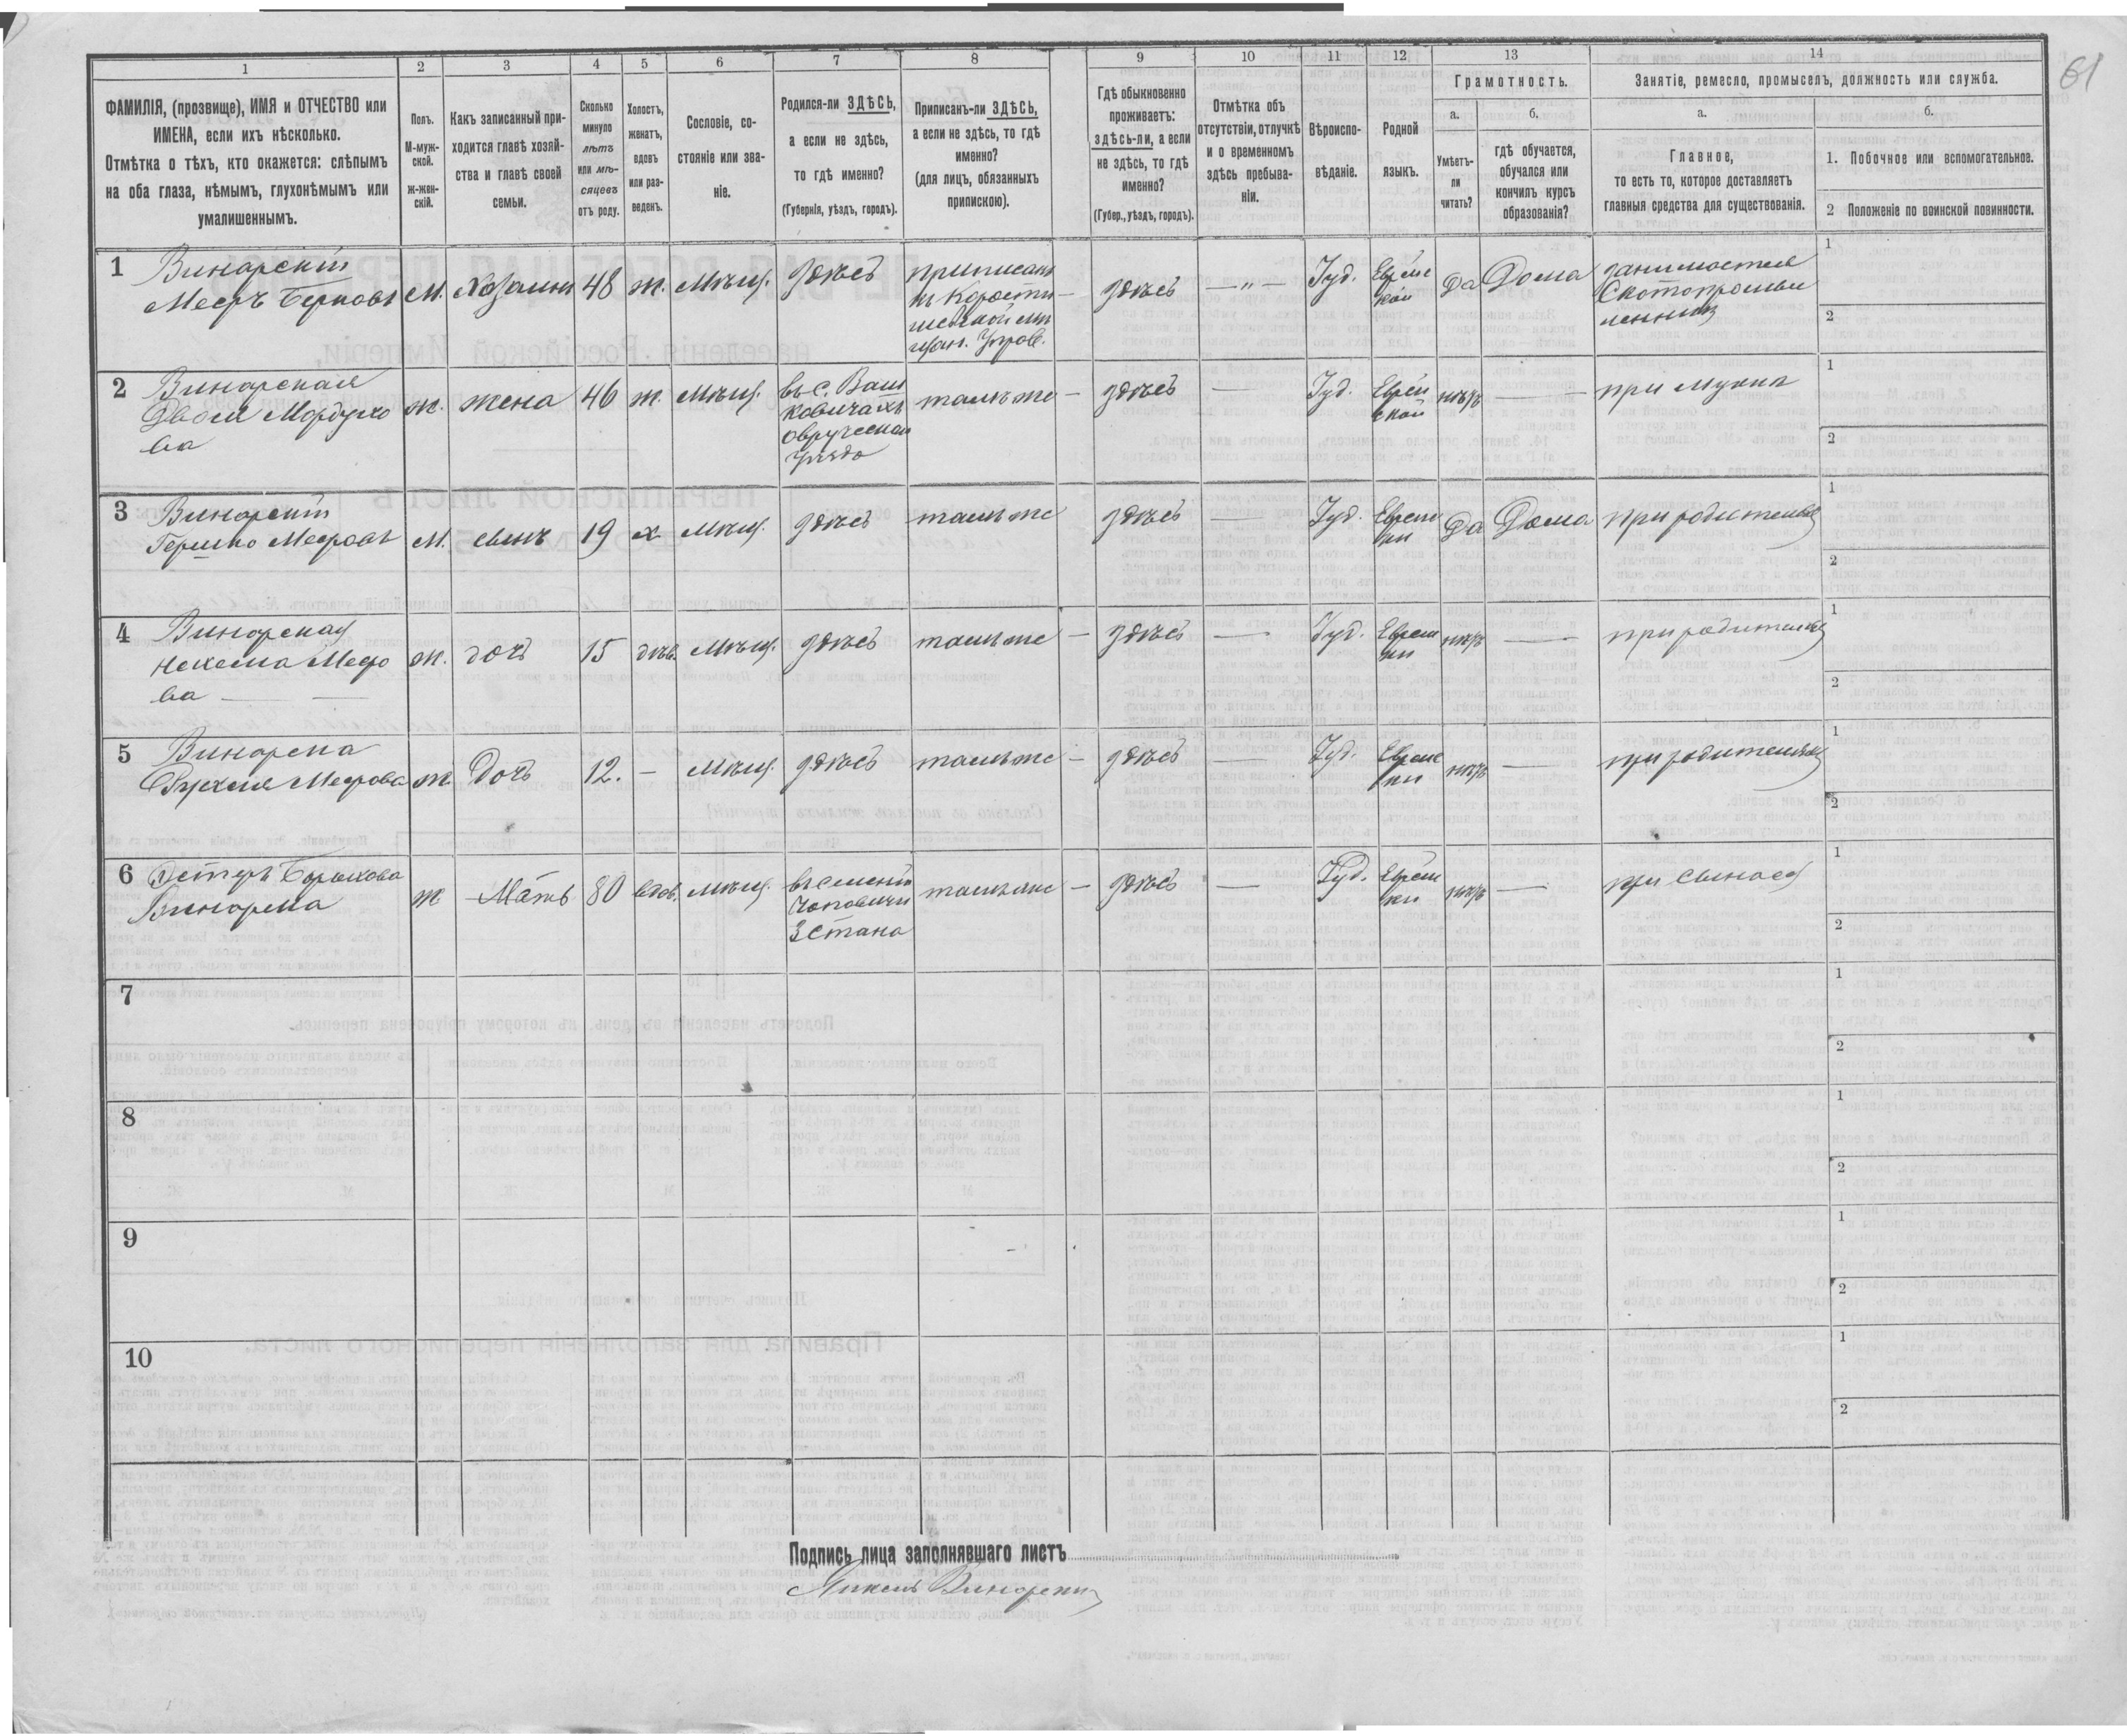 61
1 2 3 4 5 6 7 8 9 10 11 12 13 14
ФАМИЛІЯ, (прозвище), ИМЯ и ОТЧЕСТВО или
ИМЕНА, если ихъ нѣсколько.
Отмѣтка о тѣхъ, кто окажется: слѣпымъ
на оба глаза, нѣмымъ, глухонѣмымъ или
умалишеннымъ.
Полъ.
М-муж-
ской.
ж-жен-
скій.
Какъ записанный при-
ходится главѣ хозяй-
ства и главѣ своей
семьи.
Сколько
минуло
лѣтъ
или мѣ-
сяцевъ
отъ роду.
Холостъ,
женатъ,
вдовъ
или раз-
веденъ.
Сословіе, со-
стояніе или зва-
ніе.
Родился-ли ЗДѢСЬ,
а если не здѣсь,
то гдѣ именно?
(Губернія, уѣздъ, городъ).
Приписанъ-ли ЗДѢСЬ,
а если не здѣсь, то гдѣ
именно?
(для лицъ, обязанныхъ
припискою).
Гдѣ обыкновенно
проживаетъ:
здѣсь-ли, а если
не здѣсь, то гдѣ
именно?
(Губер., уѣздъ, городъ).
Отмѣтка объ
отсутствіи, отлучкѣ
и о временномъ
здѣсь пребыва-
ніи.
Вѣроиспо-
вѣданіе.
Родной
языкъ.
Грамотность.
а.
Умѣетъ-
ли
читать?
б.
гдѣ обучается,
обучался или
кончилъ курсъ
образованія?
Занятіе, ремесло, промыселъ, должность или служба.
а.
Главное,
то есть то, которое доставляетъ
главныя средства для существованія.
б.
1. Побочное или вспомогательное.
2 Положеніе по воинской повинности.
1 Винарскій
Меєръ Берковъ
М.
Хозяинъ
48
ж.
Мѣщ.
здѣсь
приписанъ
Мѣ
щан. Управ.
здѣсь
— " —
Іуд.
Еврей
ской
Да
Дома
занимается
Скотопромыш
ленникъ
1
2
2 Винарская
Двося Мордухо
ва
ж.
жена
46
ж.
Мѣщ.
въ с. Ваш
ковичахъ
Овручскаго
уѣзда
тамъ же
здѣсь
—
Іуд.
Еврей
ской
нѣтъ
—
при мужѣ
1
2
3 Винарскій
Гершко Меєровъ
М.
сынъ
19
х.
Мѣщ.
здѣсь
тамъ же
здѣсь
—
Іуд.
Еврейс
кій
Да
Дома
при родителяхъ
1
2
4 Винарская
Нехема Меєро
ва
ж.
дочь
15
дѣв.
Мѣщ.
здѣсь
тамъ же
здѣсь
—
Іуд.
Еврейс
кій
нѣтъ
—
при родителяхъ
1
2
5 Винарска
Меєрова
ж.
Дочь
12.
—
Мѣщ.
здѣсь
тамъ же
здѣсь
—
Іуд.
Еврейс
кій
нѣтъ
—
при родителяхъ
1
2
6 Эстеръ Борыхова
Винарска
ж
Мать
80
вдов.
Мѣщ.
въ
Чоповичи
3 Стана
тамъ же
здѣсь
—
Іуд.
Еврейс
кій
нѣтъ
—
при сынахъ
1
2
7
1
2
8
1
2
9
1
2
10
1
2
Подпись лица заполнявшаго листъ
Винарскій